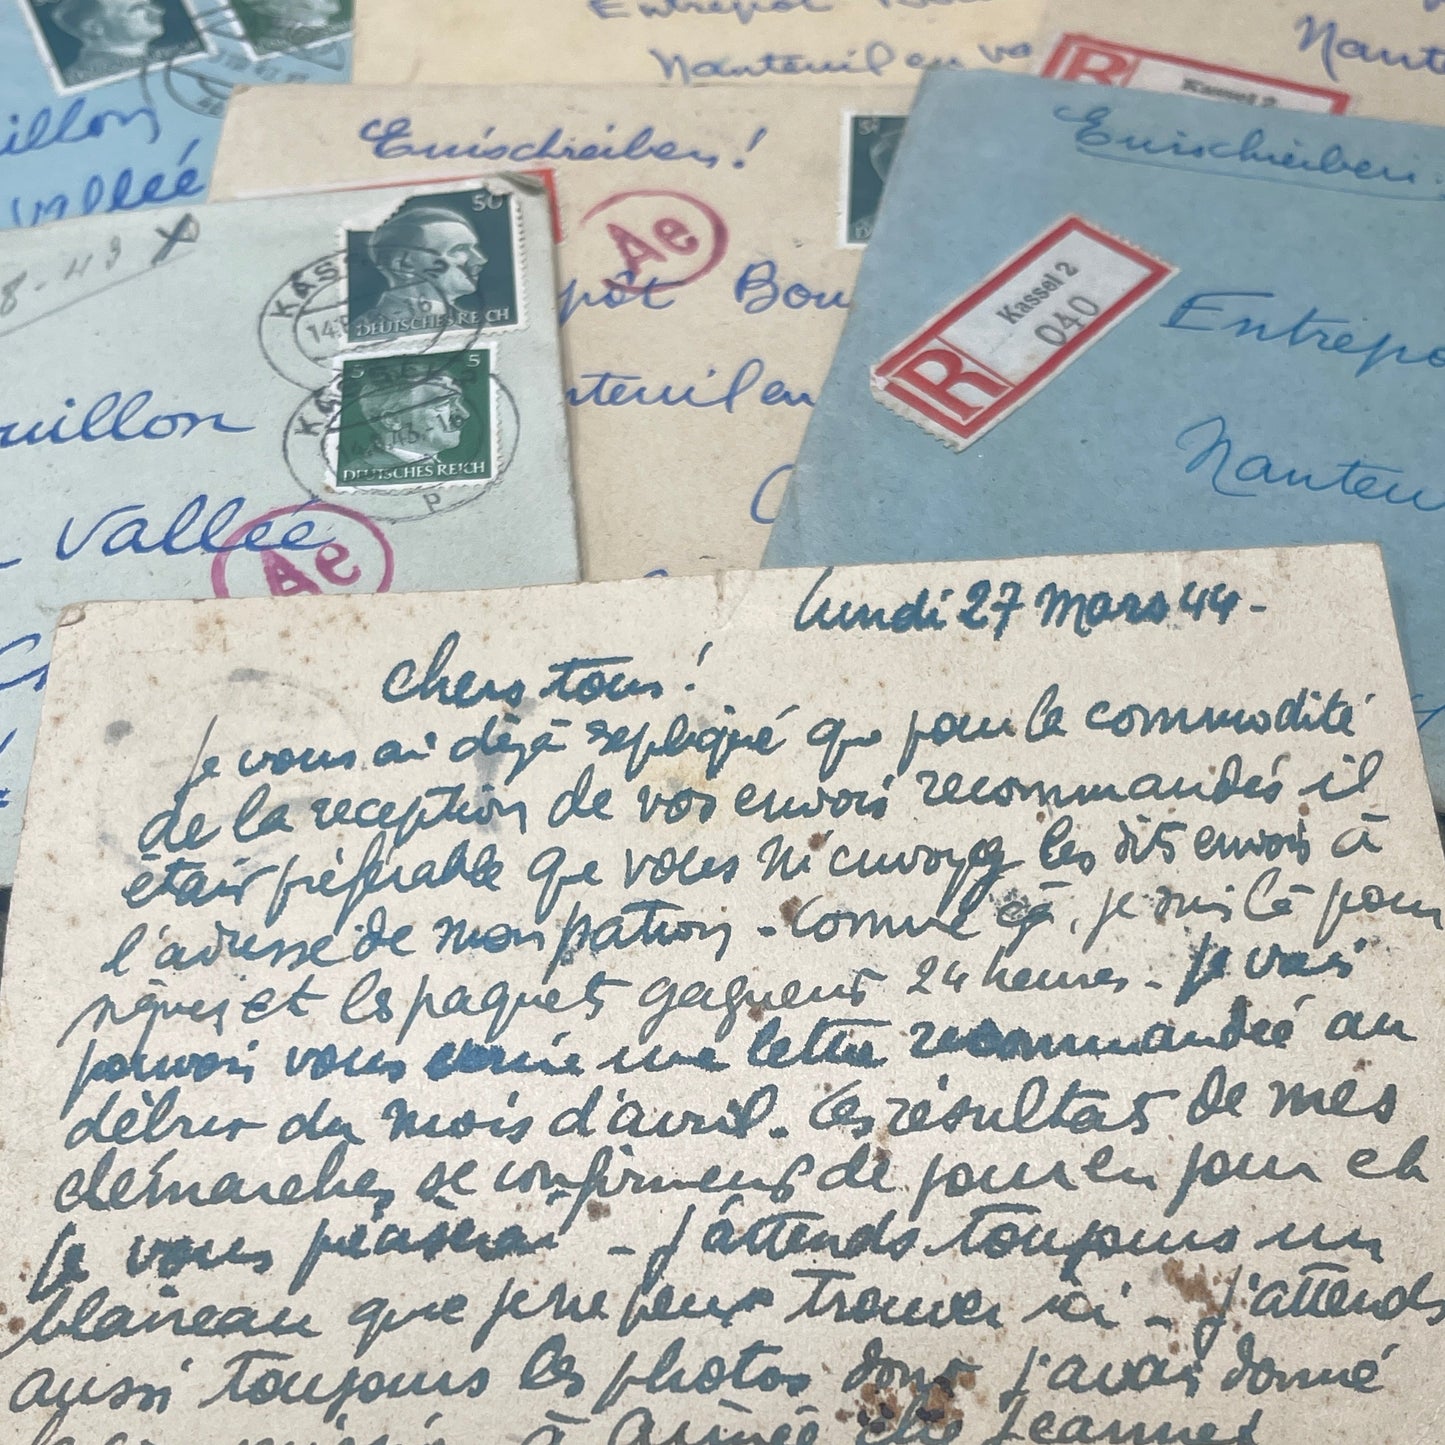 Entrepôt Bou
Nanteuil en va
Nante
R
Kassel 2
uillon
vallée
Einschreiben!
Ae
pôt Bou
nteuil en
Einschreiben
R
Kassel 2
040
Entrepo
Nanteu
8-43 X
50
DEUTSCHES REICH
5 5
DEUTSCHES REICH
P
ouillon
Vallée
Ae
lundi 27 mars 44-
chers tous!
je vous ai déjà expliqué que pour la commodité
de la réception de vos envois recommandés il
était préférable que vous m'envoyez les dits envois à
l'adresse de mon patron - Comme ça, je suis là pour
signer et les paquets gagnent 24 heures. je vais
pouvoir vous écrire une lettre recommandée au
début du mois d'avril. Les résultats de mes
démarches se confirment de jour en jour et
je vous préciserai - j'attends toujours un
blaireau que je ne peux trouver ici - j'attends
aussi toujours les photos dont j'avais donné
à Aimée che Jeannes